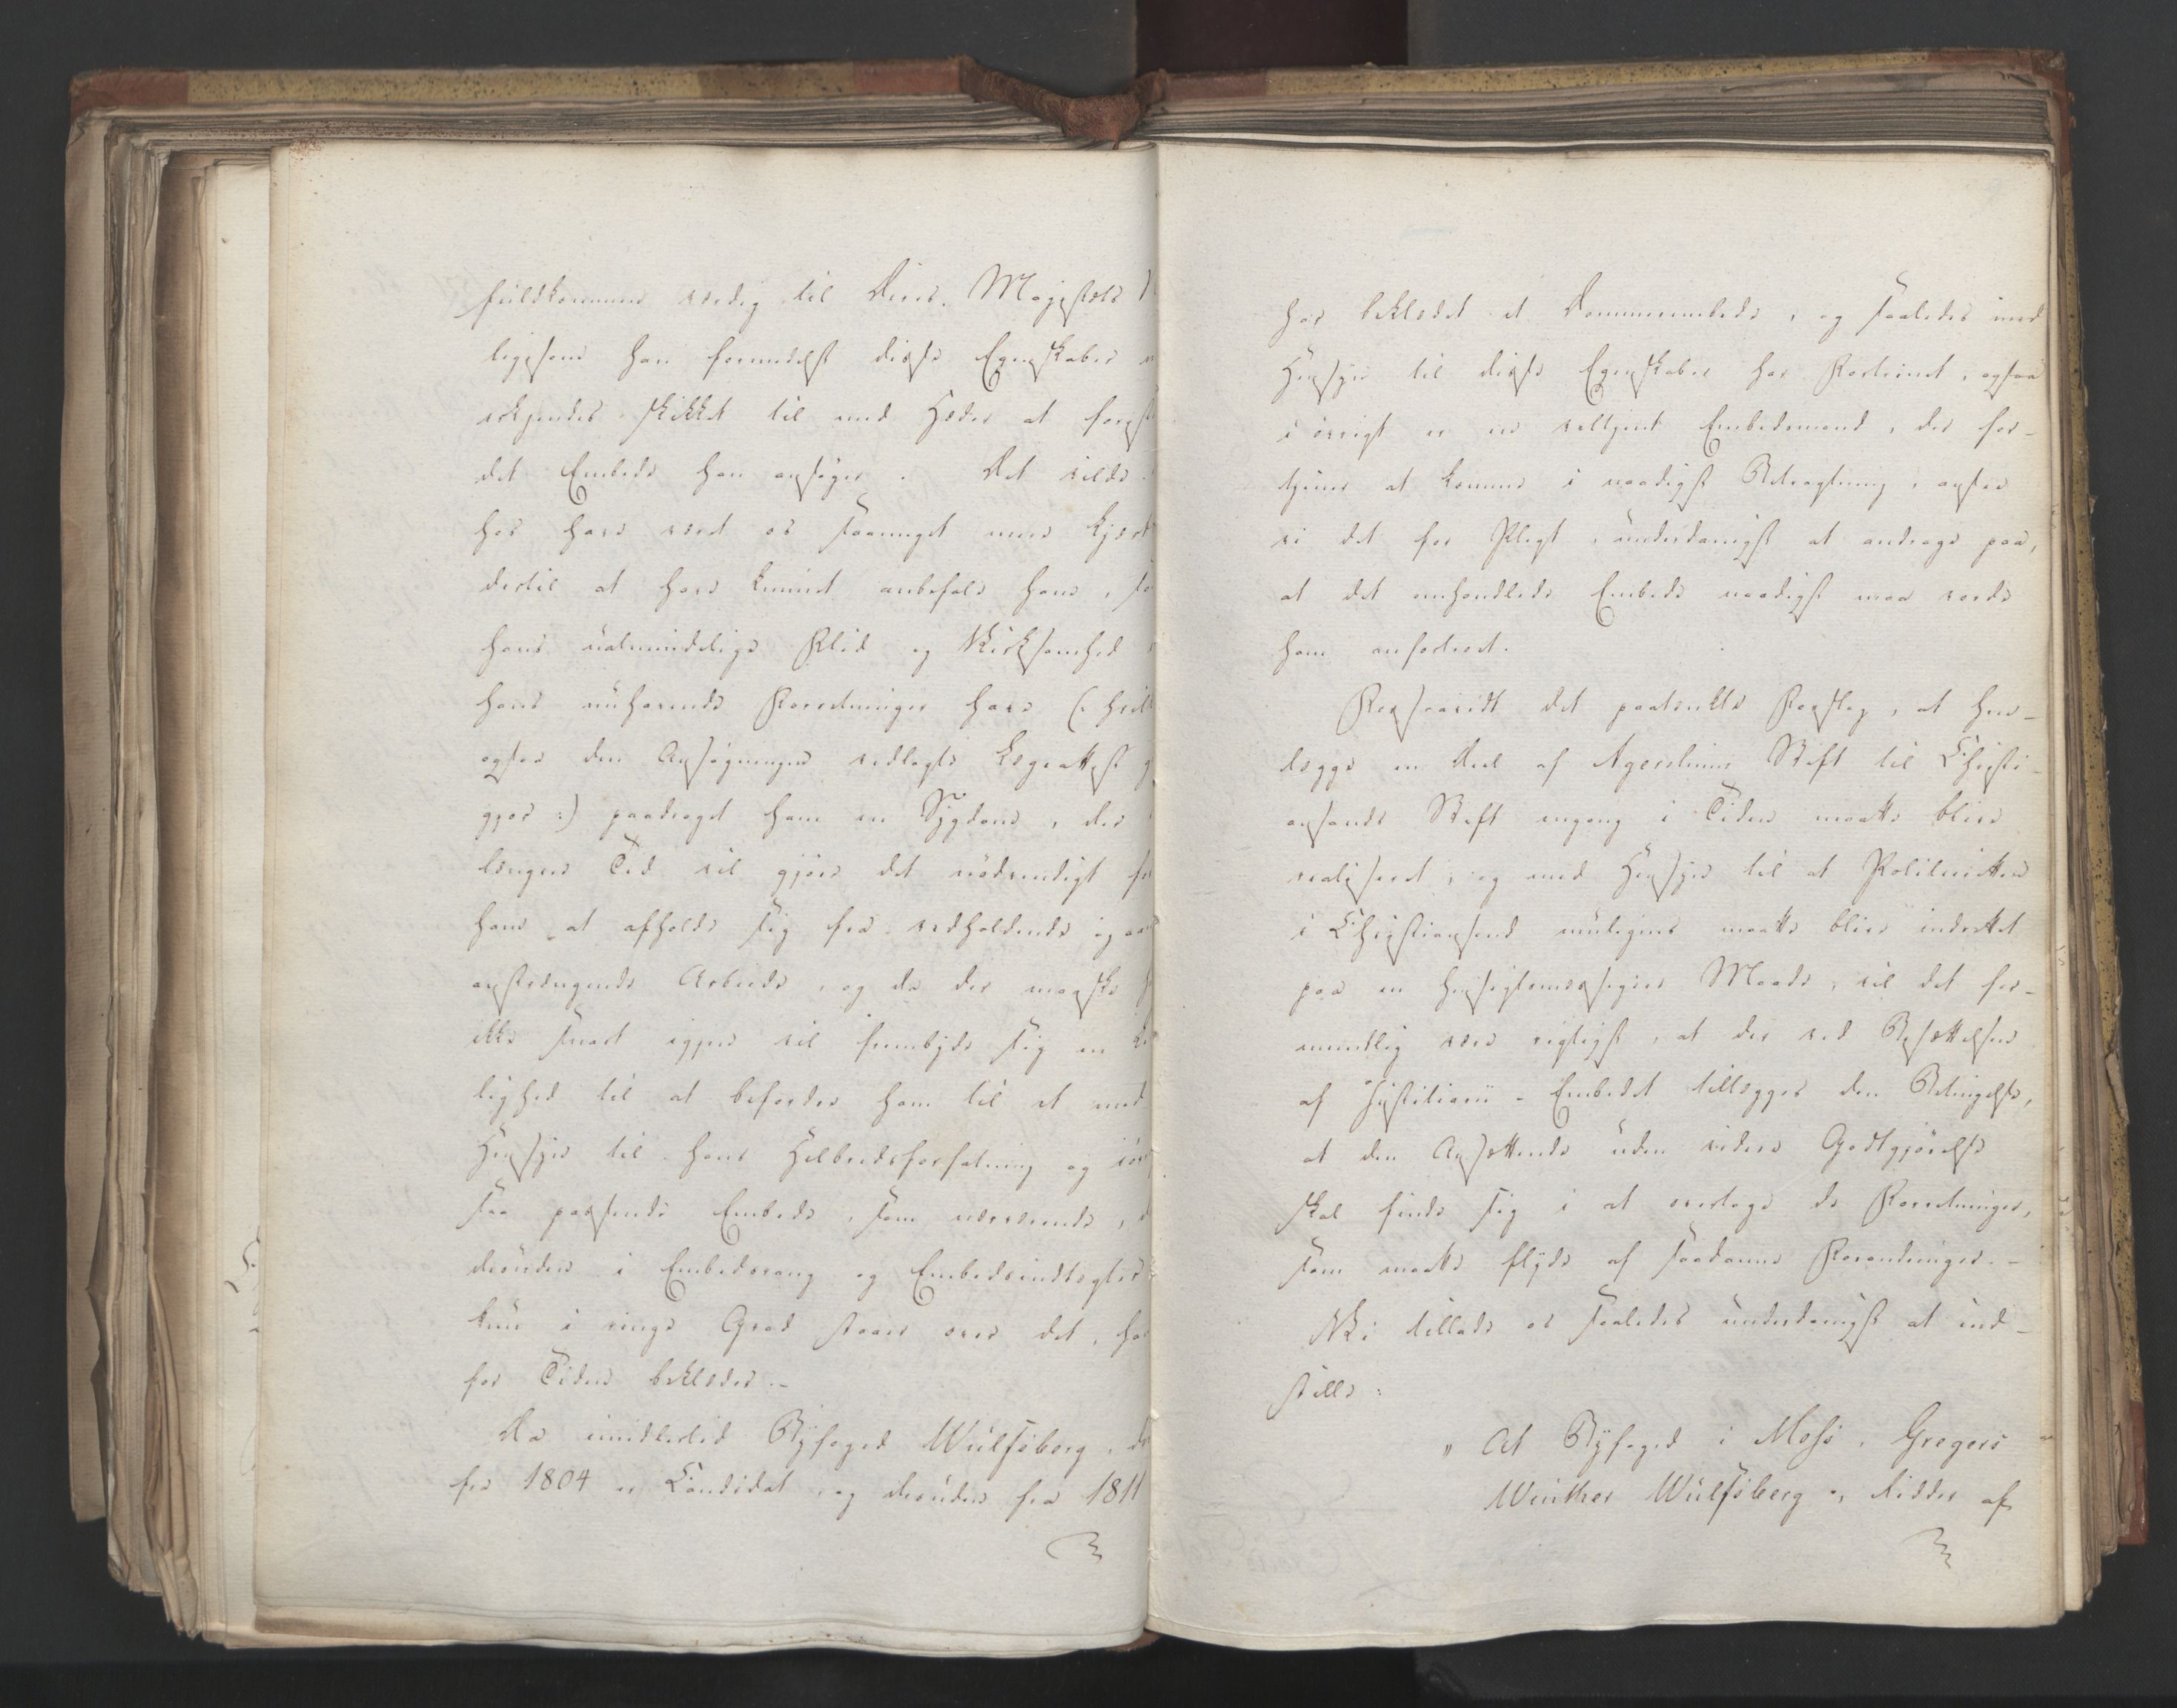 fuldkommen værdig til Deres Majestæts
ligesom han formedelst disse Egenskaber
erkjendes skikket til med Hæder at forest
det Embede han ansøger. Det vilde
hos have været os saameget mere kjært
dertil at have kunnet anbefale ham, 
hans ualmindelige Flid og Virksomhed
hans nuhavende Forretninger have (: hvilk
ogsaa den Ansøgningen vedlagte Lægeattest g
gjør :) paadraget ham en Sygdom, der
længere Tid vil gjøre det nødvendigt for
ham at afholde sig fra vedholdende og
anstrængende Arbeide, og da der maaskee
ikke snart igjen vil frembyde sig en Lei
lighed til at befordre ham til et med
Hensyn til hans Helbredsforfatning og iøvr
saa passende Embede, som nærværende,
desuden i Embedsrang og Embedsindtægter
kun i ringe Grad staaer over det, han
for Tiden beklæder.-
Da imidlertid Byfoged Wulfsberg, der
fra 1804 er Candidat, og desuden fra 1811
har beklædet et Dommerembede, og saaledes med
Hensyn til disse Egenskaber har Fortrinet, ogsaa
i øvrigt er en veltjent Embedsmand, der for-
tjener at komme i naadigst Betragtning, ansee
vi det for Pligt, underdanigst at andrage paa,
at det omhandlede Embede naadigst maa vorde
ham anfortroet.
Forsaavidt det paatænkte Forslag, at hen-
lægge en Deel af Agershuus Stift til Christi-
ansands Stift engang i Tiden maatte blive
realiseret, og med Hensyn til at Politeiretten
i Christiansand muligens maatte blive indrettet
paa en hensigtsmæssigere Maade, vil det for-
mentlig være rigtigst, at der ved Besættelsen
af Justitiarii-Embedet tillægges den Betingelse,
at den Ansættende uden videre Godtgjørelse
skal finde sig i at overtage de Forretninger,
som maatte flyde af saadanne Forandringer.-
Vi tillade os saaledes underdanigst at ind-
stille:
„At Byfoged i Moss, Gregers
Winther Wulfsberg, Ridder af